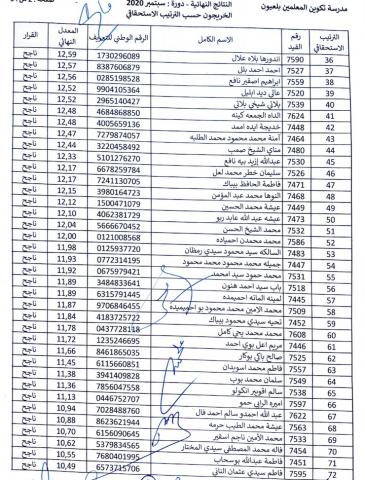 مدرسة تكوين المعلمين بلعيون
النتائج النهائية - دورة : سبتمبر 2020
الخريجون حسب الترتيب الاستحقاقي
الترتيب الاستحقاقي رقم القيد الاسم الكامل الرقم الوطني للتعريف المعدل النهائي القرار
36 7590 اندورها بلاه علال 1730296089 12,59 ناجح
37 7532 احمد احمد بلل 8387606879 12,57 ناجح
38 7559 ابراهيم اصغير نافع 0285198528 12,56 ناجح
39 7520 عالي ديد ابليل 9904105364 12,52 ناجح
40 7539 بلاتي شيخي بلاتي 2965140427 12,52 ناجح
41 7624 الداه الجمعه كينه 4684868850 12,48 ناجح
42 7448 خديجة ايده اممد 4005659136 12,48 ناجح
43 7464 آمنة محمد محمود محمد الطلبه 7279874057 12,47 ناجح
44 7480 مناي الشيخ صمب 3220458492 12,44 ناجح
45 7530 عبدالله إزيد بيه نافع 5101276270 12,33 ناجح
46 7526 سليمان خطر محمد لعل 6678259784 12,17 ناجح
47 7471 فاطمة الحافظ بيباك 7241130705 12,17 ناجح
48 7468 النوها محمد عبد المؤمن 3980164723 12,15 ناجح
49 7448 عيشة محمد الحسين 1500471079 12,12 ناجح
50 7467 عيشه عبد الله عابد ربو 4062381729 12,10 ناجح
51 7582 محمد الشيخ الحسن 5666670452 12,04 ناجح
52 7586 محمد محمدن احمياده 0121008568 12,00 ناجح
53 7483 السالكه سيد محمود سيدي رمضان 0125937720 11,98 ناجح
54 7497 جميله محمد محمود محمد محمود 0772314195 11,93 ناجح
55 7531 محمد حمود سيد امحمد 0675979421 11,92 ناجح
56 7518 باب سيد احمد هنون 3484833641 11,89 ناجح
57 7445 لمينه المانه احميمده 6315791445 11,89 ناجح
58 7509 محمد الامين محمد محمود بو احميميده 9706846455 11,87 ناجح
59 7452 نحيه سيدي محمود بيباك 4183725722 11,84 ناجح
60 7608 محمد محمد يحي كامل 0437728118 11,78 ناجح
61 7446 مريم اعل بوي احمد 1235246695 11,72 ناجح
62 7525 صالح باكي بوكار 8461865035 11,66 ناجح
63 7557 فاطم محمد اسويدان 6115660851 11,45 ناجح
64 7599 سلمان محمد بوب 3941409828 11,38 ناجح
65 7558 سالم اقويبر انكولو 7856047558 11,36 ناجح
66 7597 اميره الرابي حمو 0446752707 11,13 ناجح
67 7622 عبد الله احمدو سالم احمد فال 7028488760 10,94 ناجح
68 7563 عيشة محمد الطيب حرمه 8623621944 10,88 ناجح
69 7533 محمد الأمين ناجم اسغير 6156090645 10,70 ناجح
70 7454 فاله محمد المصطفى سيدي المختار 5379834565 10,62 ناجح
71 7455 فاطمة عبدالله بوسحاب 7680401995 10,55 ناجح
72 7595 فاطم سيدي عثمان الثاني 6573715706 10,49 ناجح